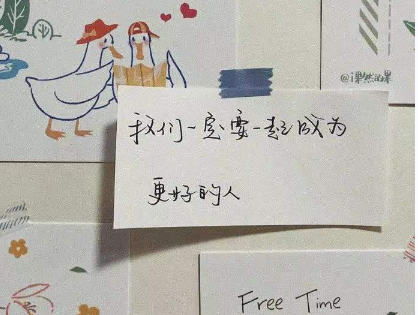 我们一定要一起成为
更好的人
Free Time